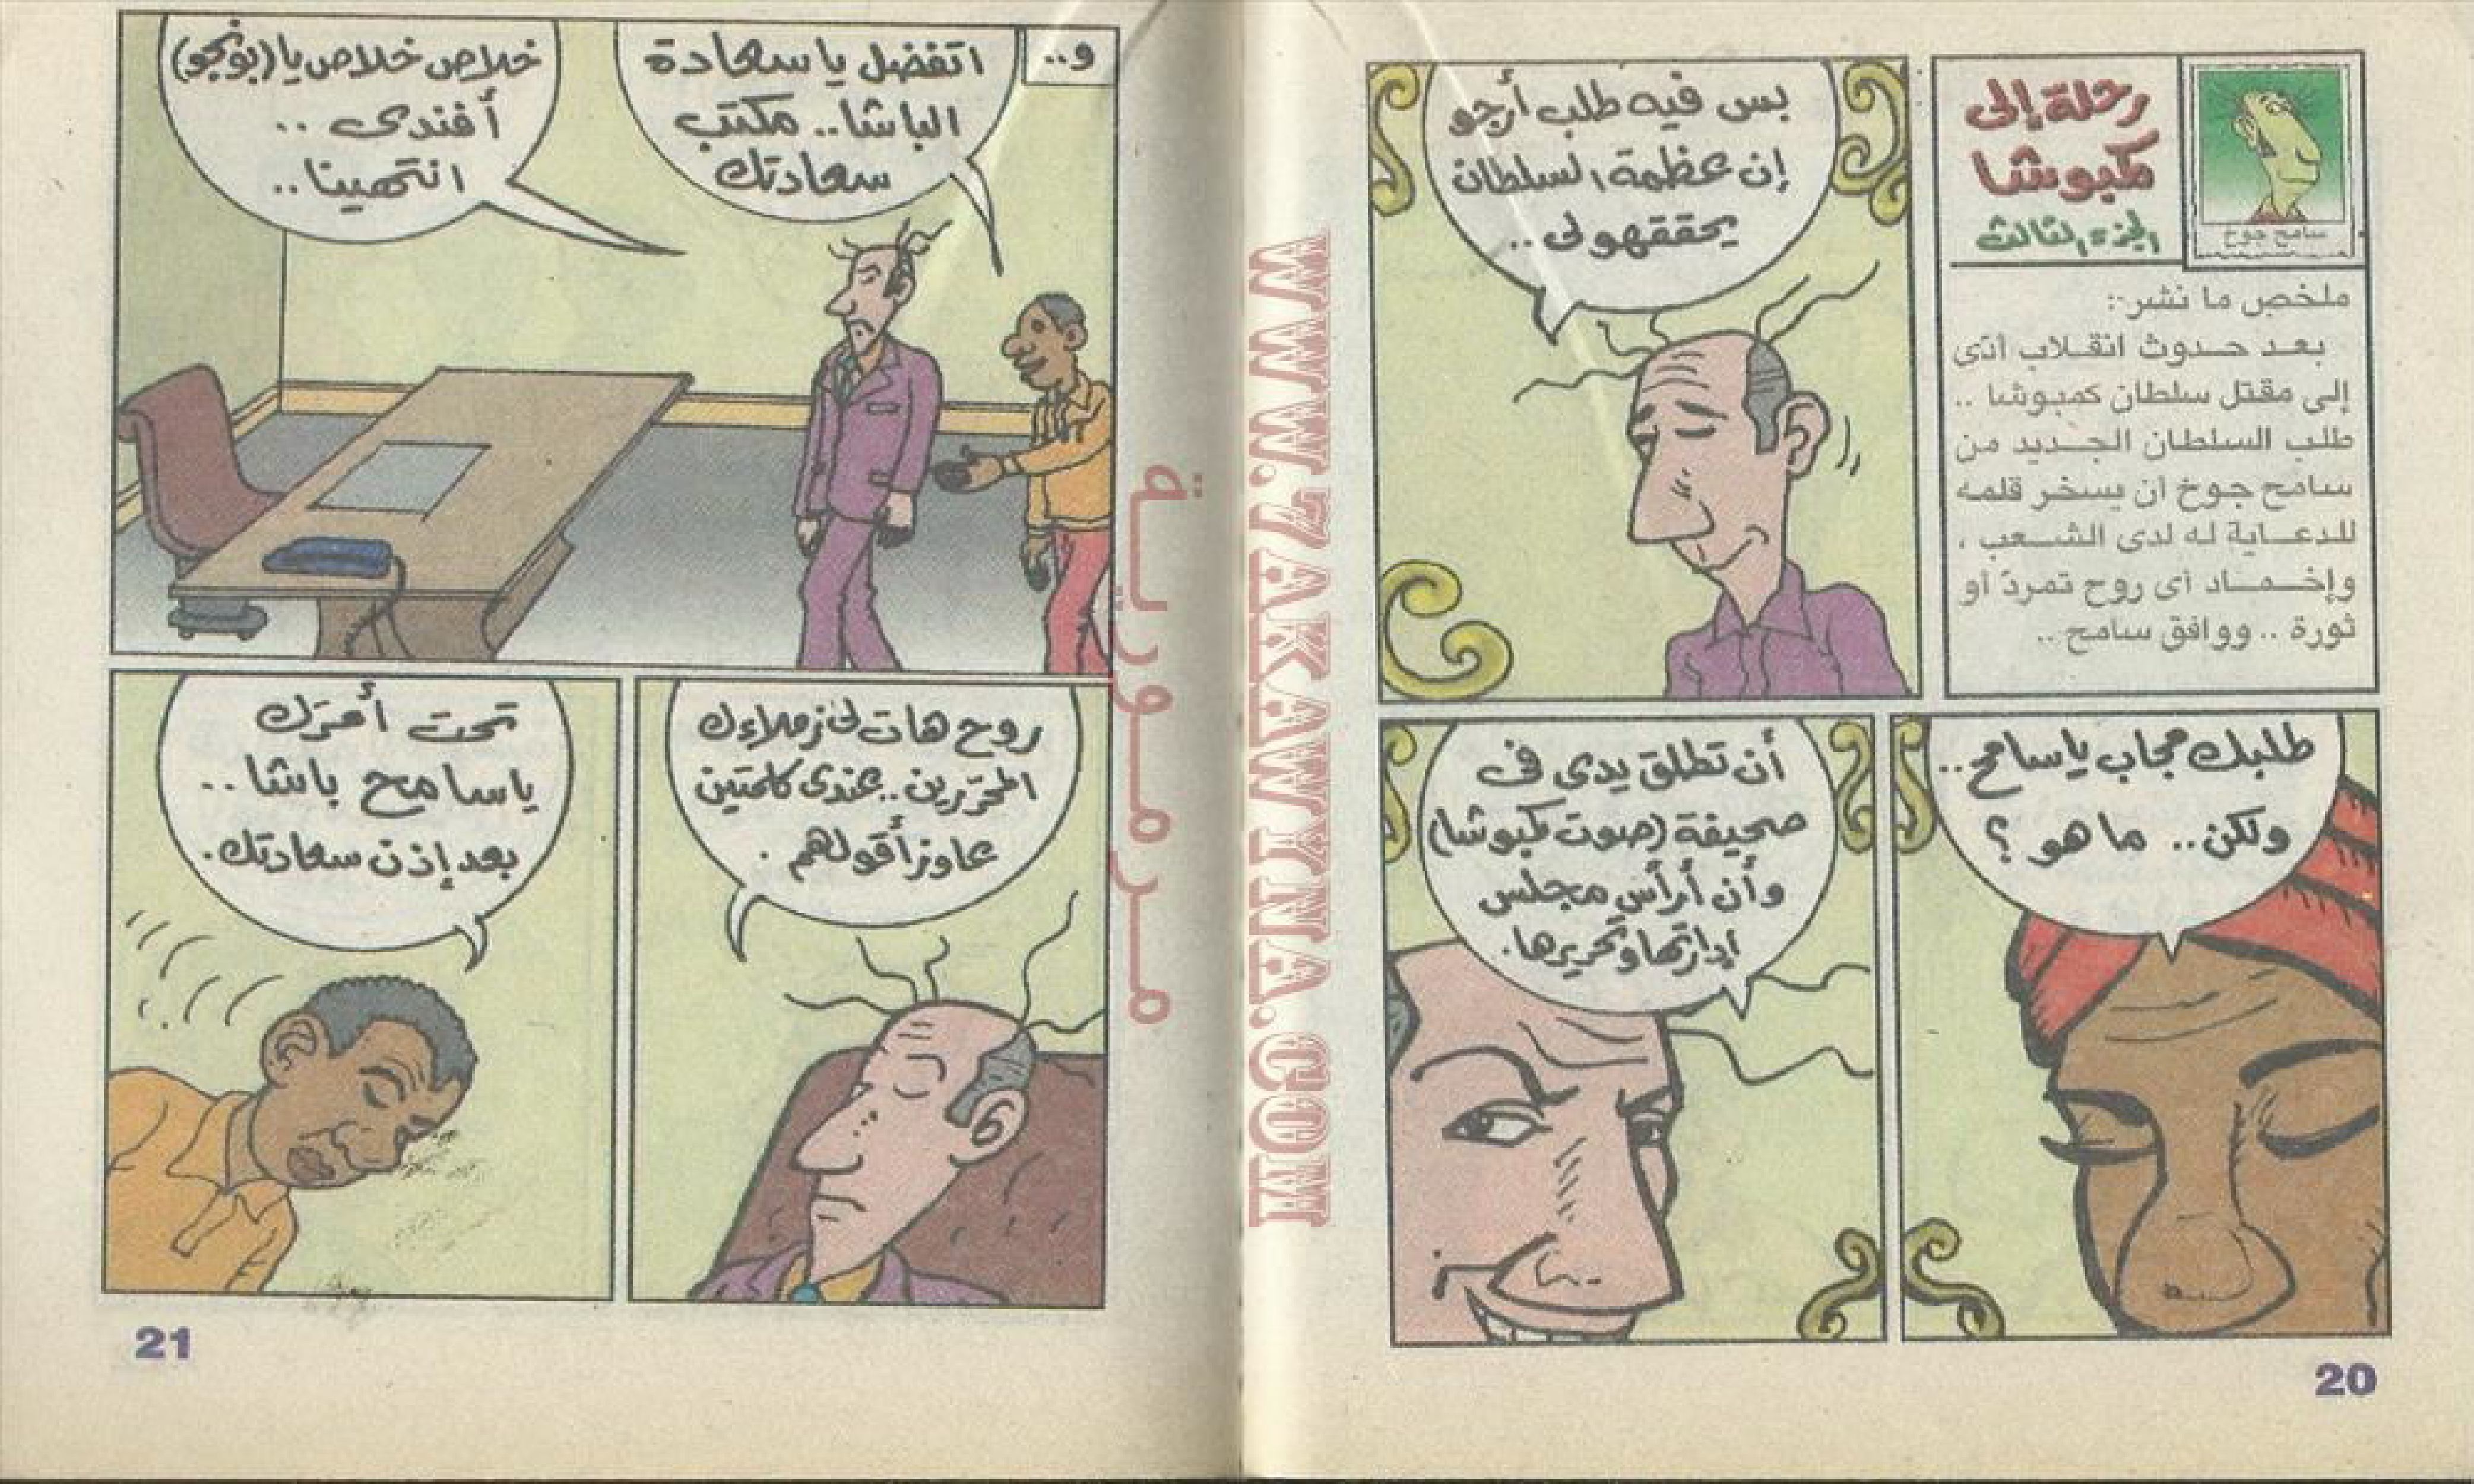 رحلة إلى
كمبوشا
الجزء الثالث
سامح جوخ
ملخص ما نشر:
بعد حدوث انقلاب أدّى
إلى مقتل سلطان كمبوشا ..
طلب السلطان الجديد من
سامح جوخ أن يسخر قلمه
للدعاية له لدى الشعب ،
وإخماد أى روح تمردّ أو
ثورة .. ووافق سامح ..
بس فيه طلب أرجو
إن عظمة السلطان
يحققهولى ..
طلبك مجاب ياسامح ..
ولكن .. ما هو ؟
أن تطلق يدى فى
صحيفة (صوت كمبوشا)
وأن أرأس مجلس
إدارتها وتحريرها.
20
و..
اتفضل يا سعادة
الباشا.. مكتب
سعادتك
خلاص خلاص يا (بونجو)
أفندى ..
انتهينا ..
روح هات لى زملاءك
المحرّرين .. عندى كلمتين
عاوز أقولهم .
تحت أمرَك
ياسامح باشا ..
بعد إذن سعادتك .
21
مرمورية
WWW.7AKAWYNA.COM